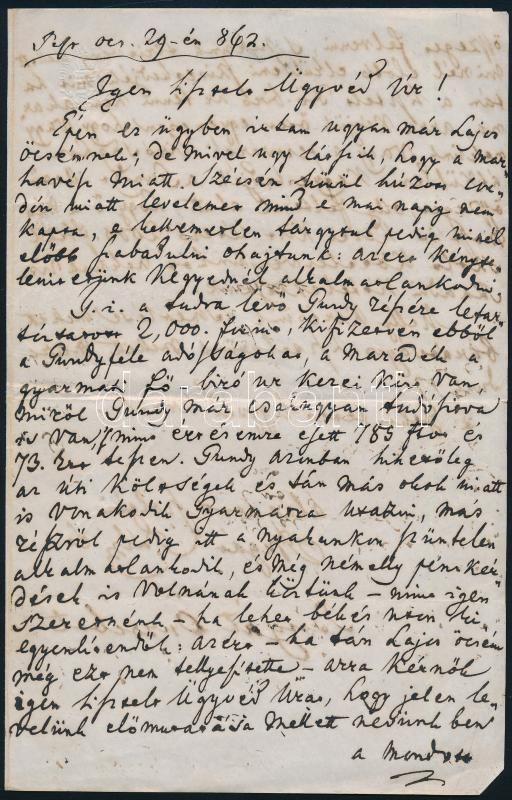 Pest oct. 29-én 862.
Igen tisztelt Ügyvéd Úr!
Épen ez ügyben irtam ugyan már Lajos
öcsémnek, de mivel ugy látszik, hogy a mar-
havész miatt Szécsén körül húzott
miatt levelemet mind e mai napig nem
kapta, e kellemetlen tárgytul pedig minél
előbb szabadulni ohajtunk: azért kényte-
lenittetjünk Kegyednél alkalmatlankodni.
T. i. a tudva lévő Gundy részére letar-
tóztatott 2,000. , kifizetvén ebből
a Gundyféle adósságokat, a maradék a
gyarmati Fő biró ur kezei közt van,
miről Gundy már tudósitva
is van, mint ezrésemre esett 785 és
73. . Gundy azonban hihetőleg
az úti költségek és tán más okok miatt
is vonakodik Gyarmatra utazni, más
részről pedig itt a nyakunkon szüntelen
alkalmatlankodik, és még némely pénzkér-
dések is volnának köztünk – mint igen
szeretnénk – ha lehet békés uton ki-
egyenlitendők: azért – ha tán Lajos öcsém
még ezt nem teljesitette – arra kérném
igen tisztelt Ügyvéd Urat, hogy jelen le-
velünk előmutatása mellett nevünkben
a mondott
darabanth